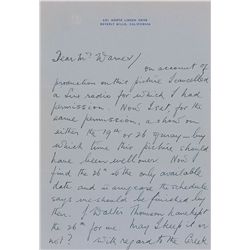 BEVERLY HILLS, CALIFORNIA
Dear Mr Warner/
on account of
production on this picture I cancelled
a Lux radio for which I had
permission. Now I set, for the
same permission, a show on
either the 19th or 26 of may - by
which time this picture should
have been well over. Now I
find the 26th is the only available
date and in any case the schedule
says we should be finished by
then. J. Walter Thomson have kept
the 26th for me. May I keep it or
not? with regard to the Greek